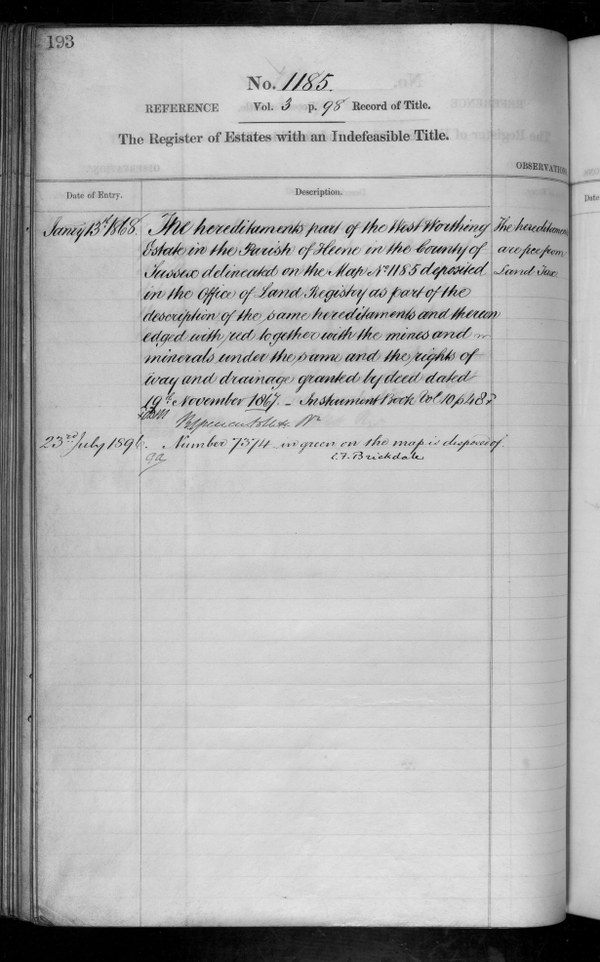 193
No. 1185.
REFERENCE Vol. 3 p. 98 Record of Title.
The Register of Estates with an Indefeasible Title.
OBSERVATION
Date of Entry. Description.
Jany 13th 1868. The hereditaments part of the West Worthing
Estate in the Parish of Heene in the County of
Sussex delineated on the Map No 1185 deposited
in the Office of Land Registry as part of the
description of the same hereditaments and thereon
edged with red together with the mines and
minerals under the same and the rights of
way and drainage granted by deed dated
19th November 1867. – Instrument Book Vol 10 p 487
The hereditaments
are free from
Land Tax
23rd July 1896. Number 7374 in green on the map is disposed of
C. F. Brickdale
Da